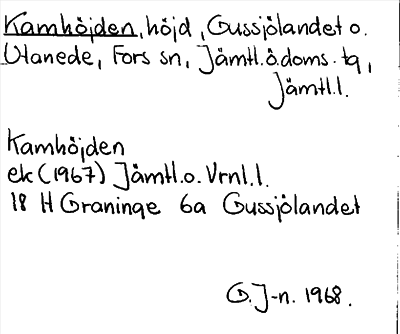 Kamhöjden, höjd, Gussjölandet o.
Utanede, Fors sn, Jämtl.ö.doms.tg,
Jämtl.l.
Kamhöjden
ek (1967) Jämtl.o.Vrnl.l.
18 H Graninge 6a Gussjölandet
G.J-n. 1968.